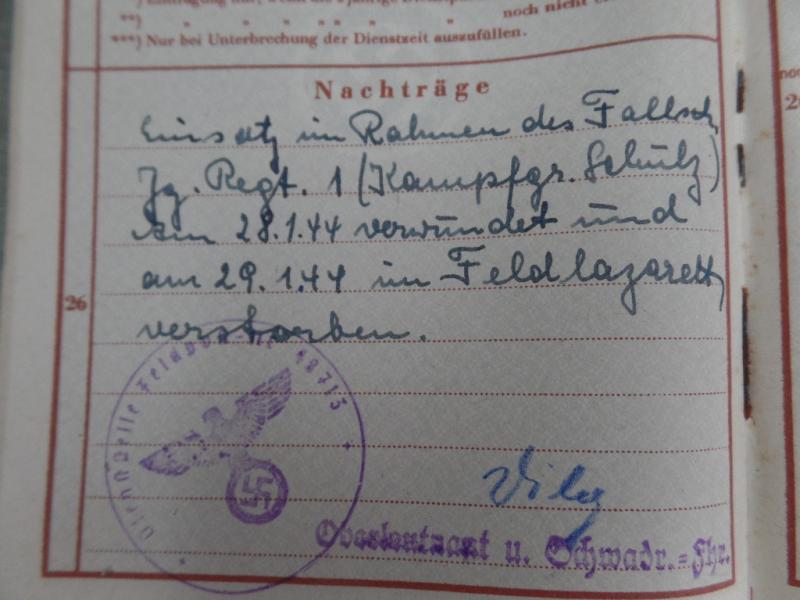 **) " " " " " " noch nicht
***) Nur bei Unterbrechung der Dienstzeit auszufüllen.
Nachträge
Einsatz im Rahmen des Fallsch.
Jg. Regt. 1 (Kampfgr. Schulz)
Am 28.1.44 verwundet und
am 29.1.44 im Feldlazarett
26
verstorben.
Dienststelle Feldpost-Nr. 48713
Oberleutnant u. Schwadr.=Fhr.